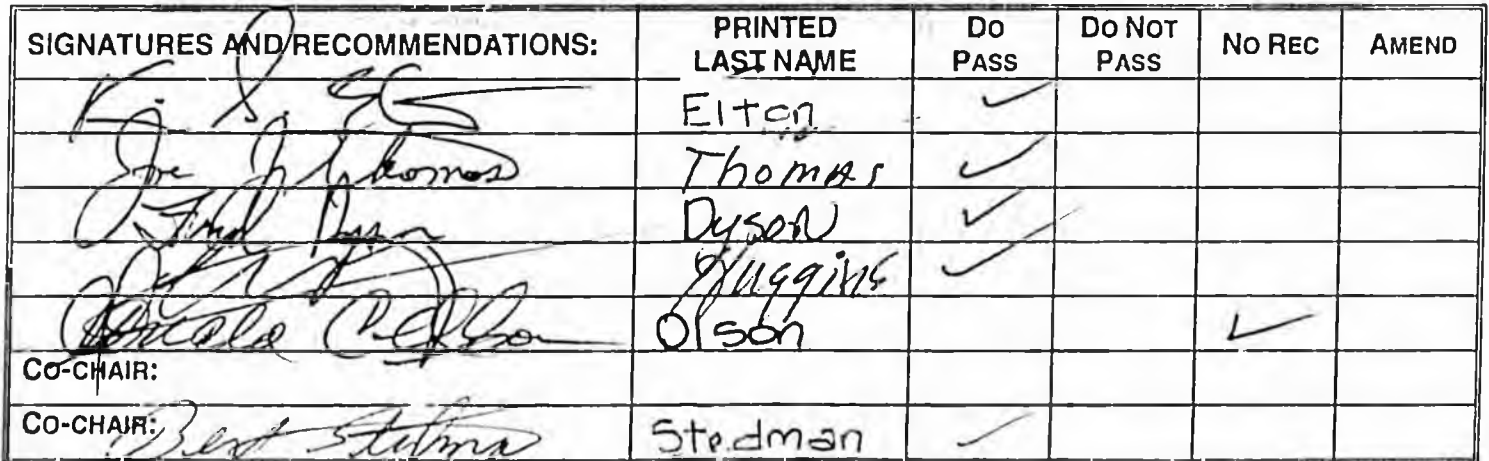 SIGNATURES AND RECOMMENDATIONS: PRINTED LAST NAME DO PASS DO NOT PASS NO REC AMEND
Elton ✓
Joe J Thomas Thomas ✓
Fred Dyson Dyson ✓
Huggins ✓
Olson ✓
CO-CHAIR:
CO-CHAIR: Bert Stedman Stedman ✓